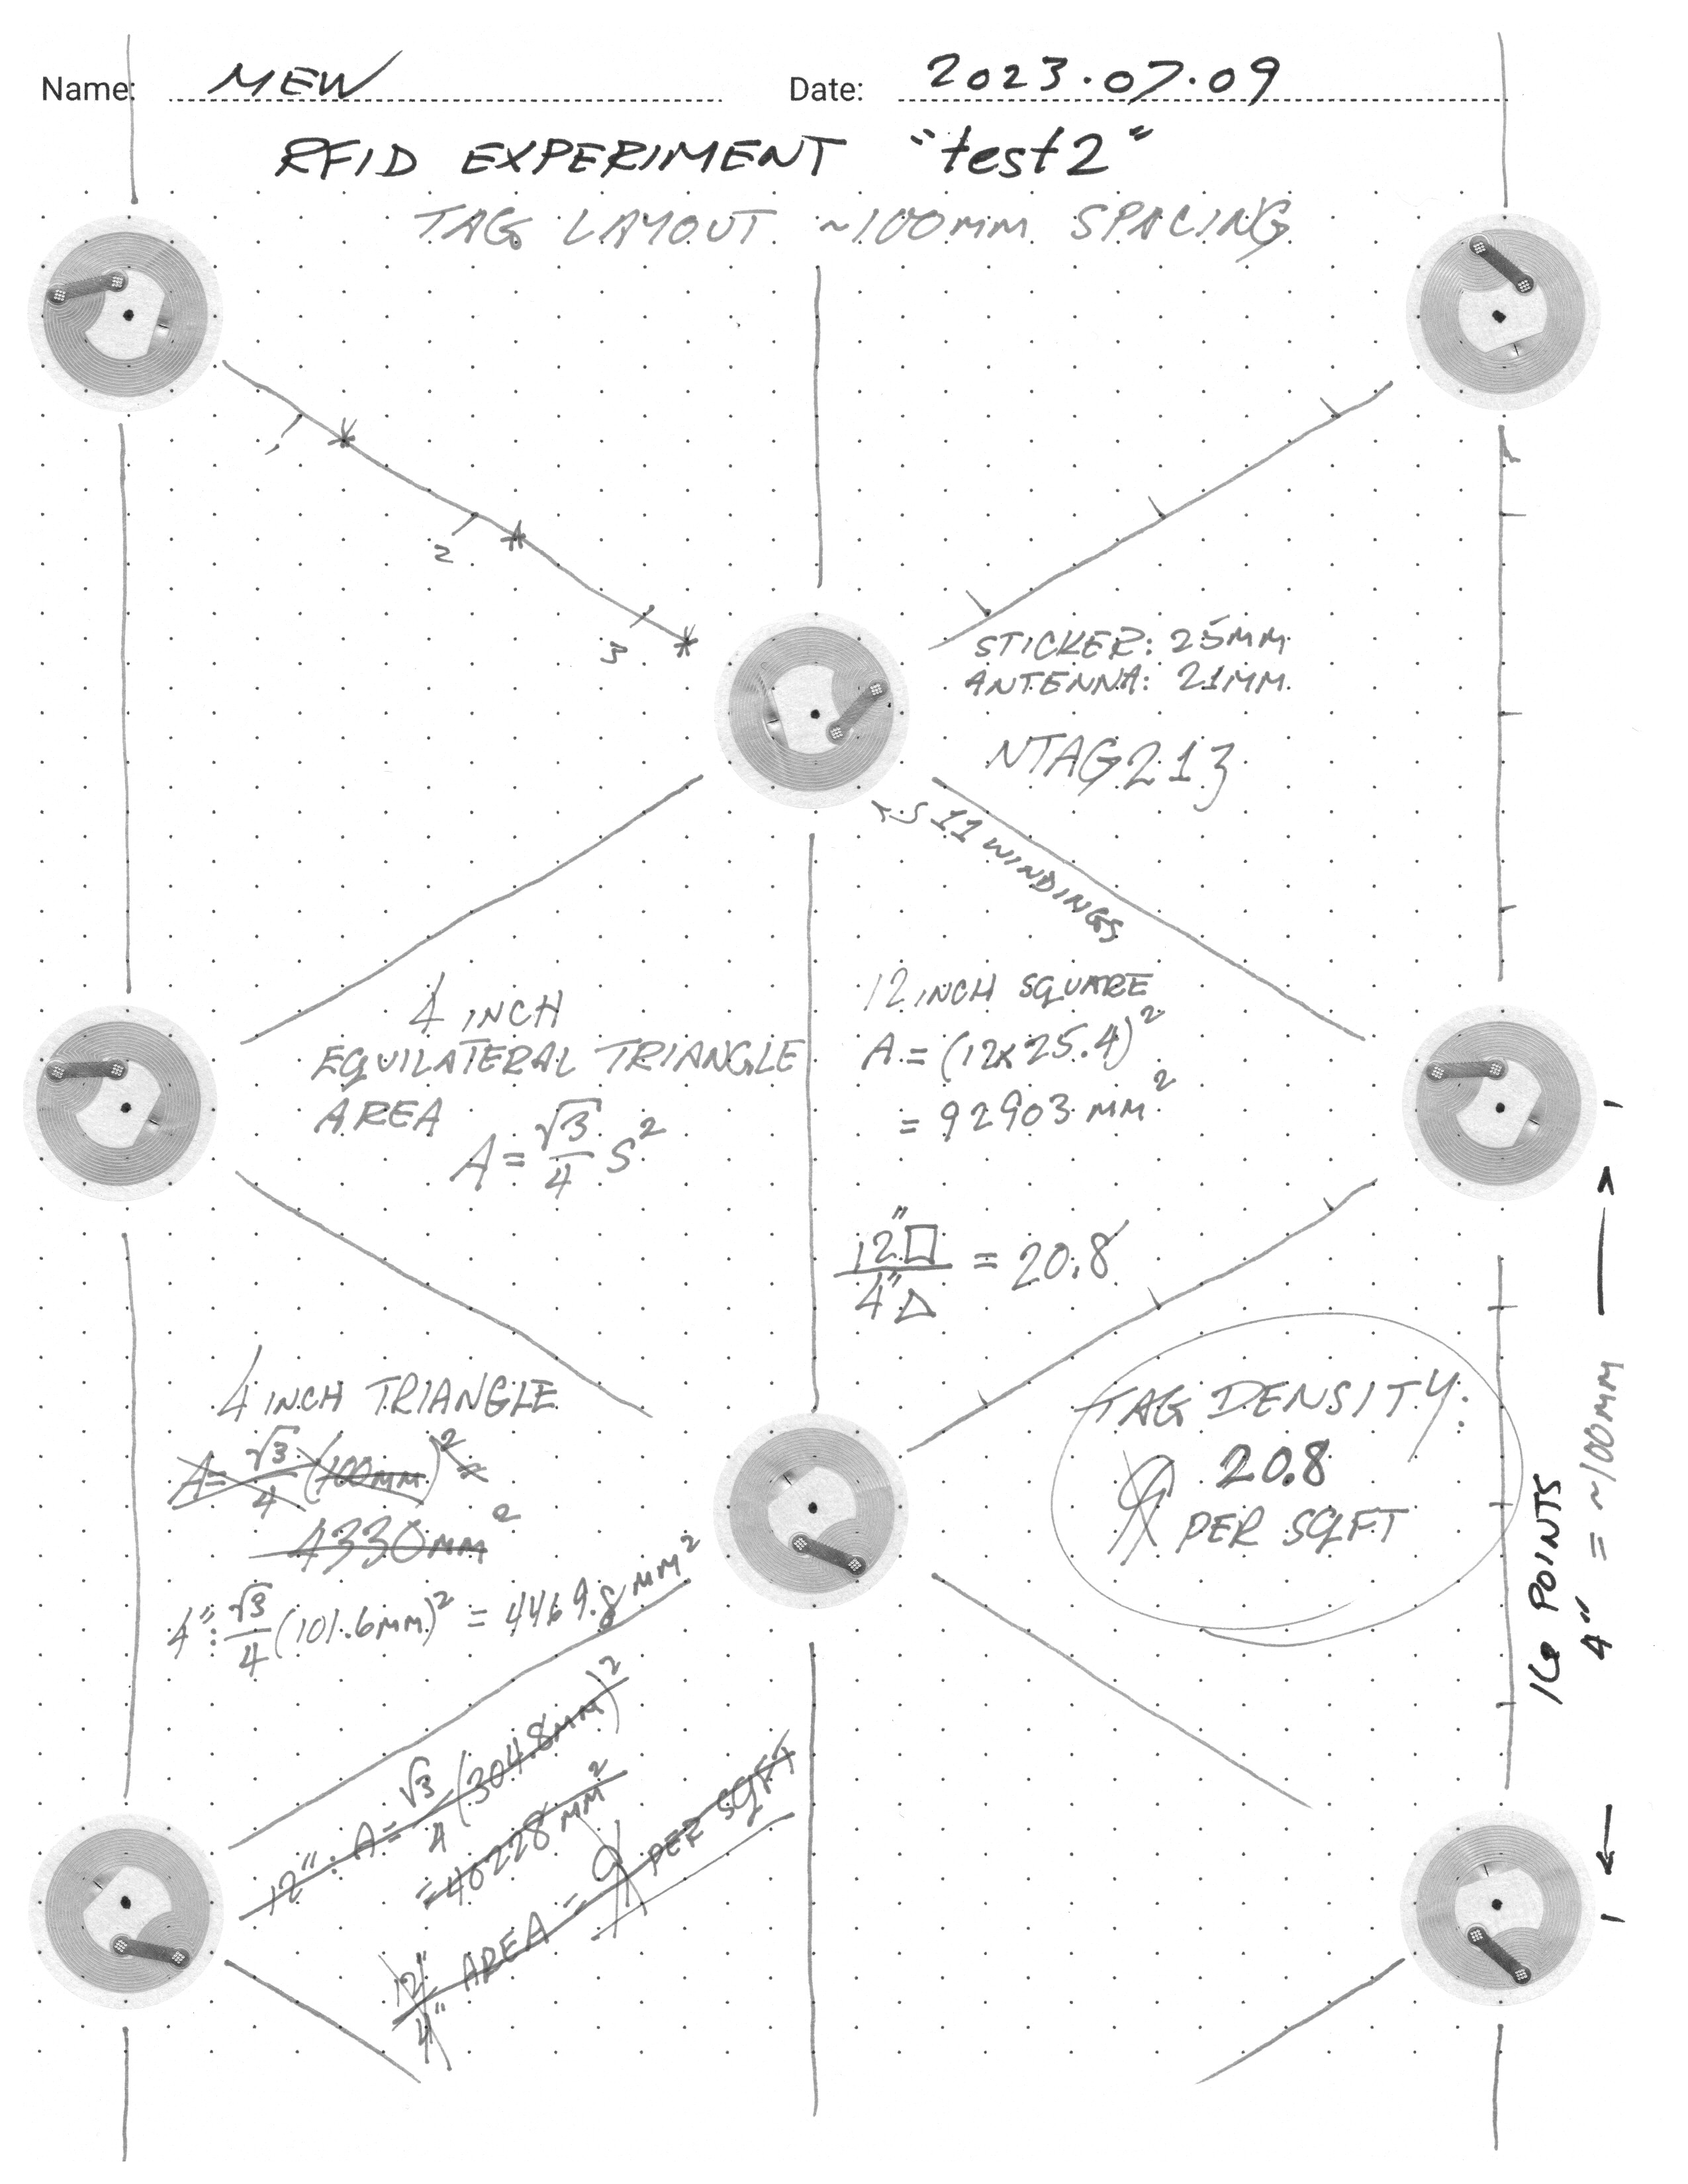 Name: MEW Date: 2023.07.09
RFID EXPERIMENT "test2"
TAG LAYOUT ~100MM SPACING
1
2
3
STICKER: 25MM
ANTENNA: 21MM
NTAG213
11 WINDINGS
4 INCH
EQUILATERAL TRIANGLE
AREA
A = √3/4 S²
12 INCH SQUARE
A = (12x25.4)²
= 92903 MM²
12"□/4"△ = 20.8
4 INCH TRIANGLE
A = √3/4 (100MM)² =
4330MM²
4": √3/4 (101.6MM)² = 4469.8 MM²
12": A = √3/4 (304.8MM)²
= 40228 MM²
12"/4" AREA = 9 PER SQFT
TAG DENSITY:
9 20.8
PER SQFT
16 POINTS
4" = ~100MM